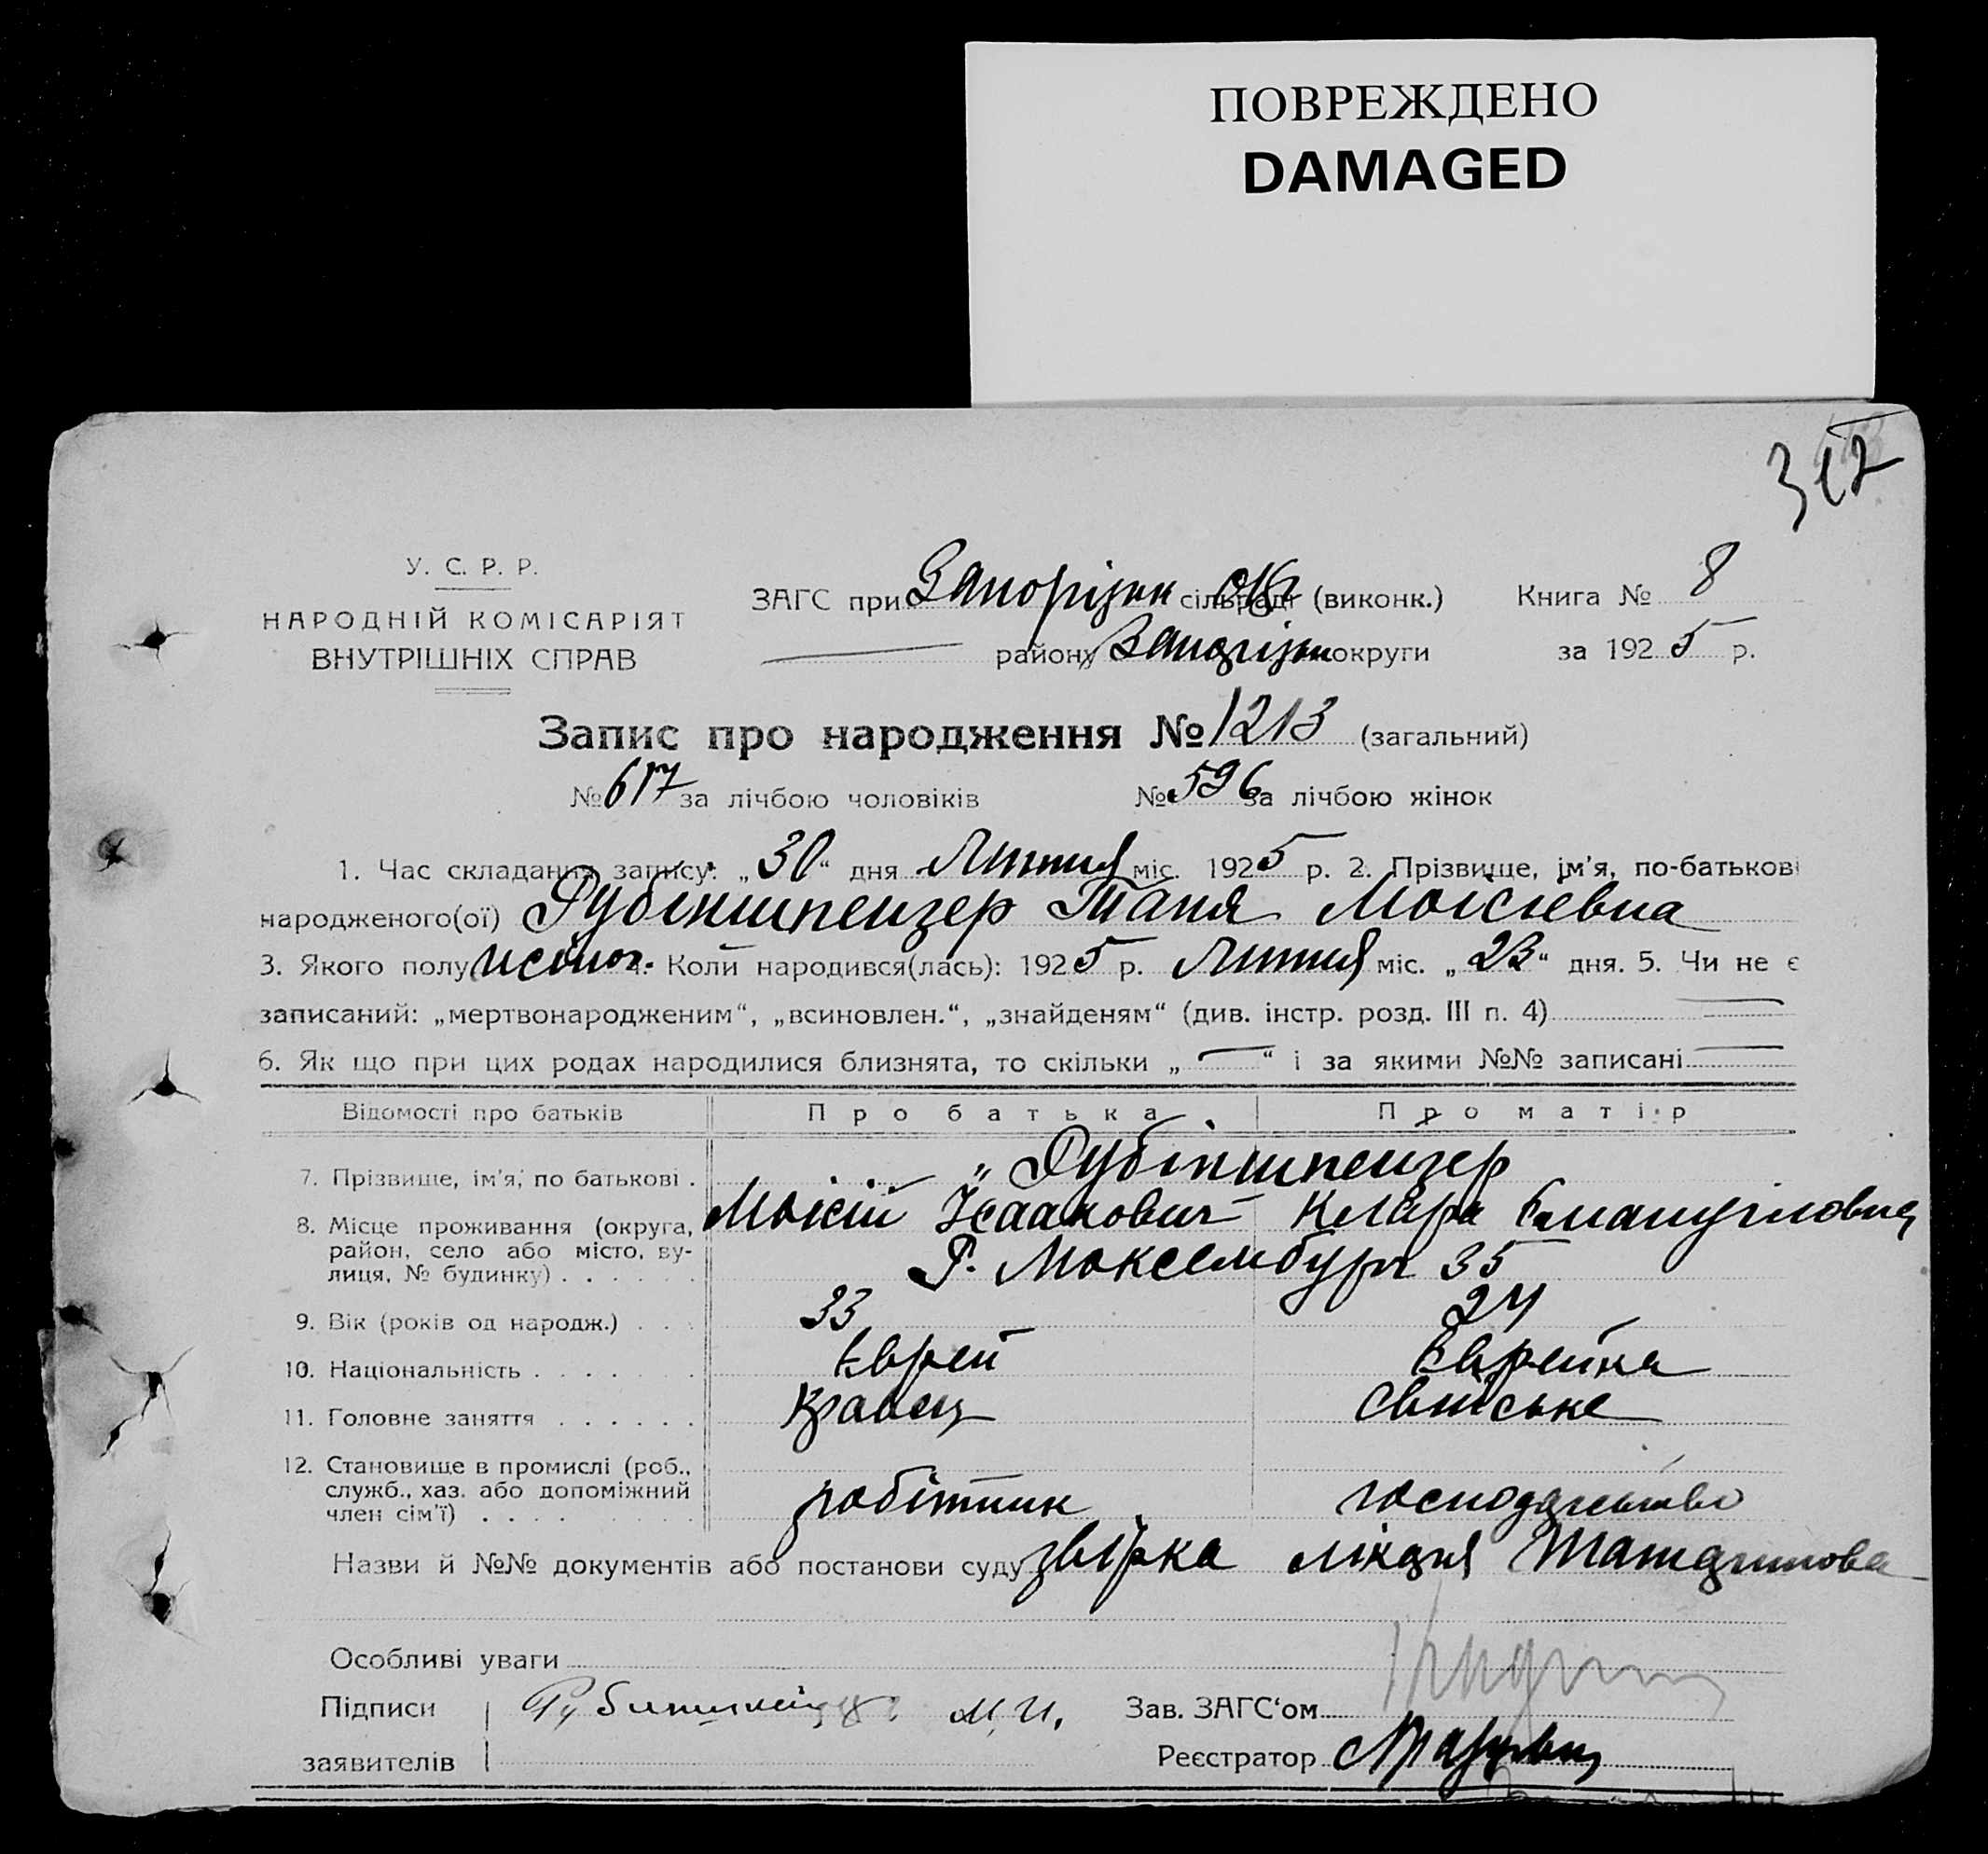 ПОВРЕЖДЕНО
DAMAGED
312
У. С. Р. Р.
НАРОДНІЙ КОМІСАРІЯТ
ВНУТРІШНІХ СПРАВ
ЗАГС при Запорізьк сільраді (виконк.)
району Запорізьк округи
Книга № 8
за 1925 р.
Запис про народження № 1213 (загальний)
№ 617 за лічбою чоловіків № 596 за лічбою жінок
1. Час складання запису: „30“ дня Липня міс. 1925 р. 2. Прізвище, ім'я, по-батькові
народженого(ої) Рубіншпензер Таня Мойсієвна
3. Якого полу жіноч. 4. Коли народився(лась): 1925 р. Липня міс. „23“ дня. 5. Чи не є
записаний: „мертвонародженим“, „всиновлен.“, „знайденям“ (див. інстр. розд. III п. 4)
6. Як що при цих родах народилися близнята, то скільки „—“ і за якими №№ записані —
Відомості про батьків Про батька Про матір
7. Прізвище, ім'я, по батькові . Рубіншпензер
Мойсій Ісаакович Клара Емануїловна
8. Місце проживання (округа, район, село або місто, вулиця, № будинку) . . . . . . Р. Люксембург 35
9. Вік (років од народж.) . . . 33 24
10. Національність . . . . . . . Єврей Єврейка
11. Головне заняття . . . . . . Кравец свійське
12. Становище в промислі (роб., служб., хаз. або допоміжний член сім'ї) . . . . робітник господарство
Назви й №№ документів або постанови суду звірка
Особливі уваги
Підписи
заявителів
М. И.
Зав. ЗАГС'ом
Реєстратор